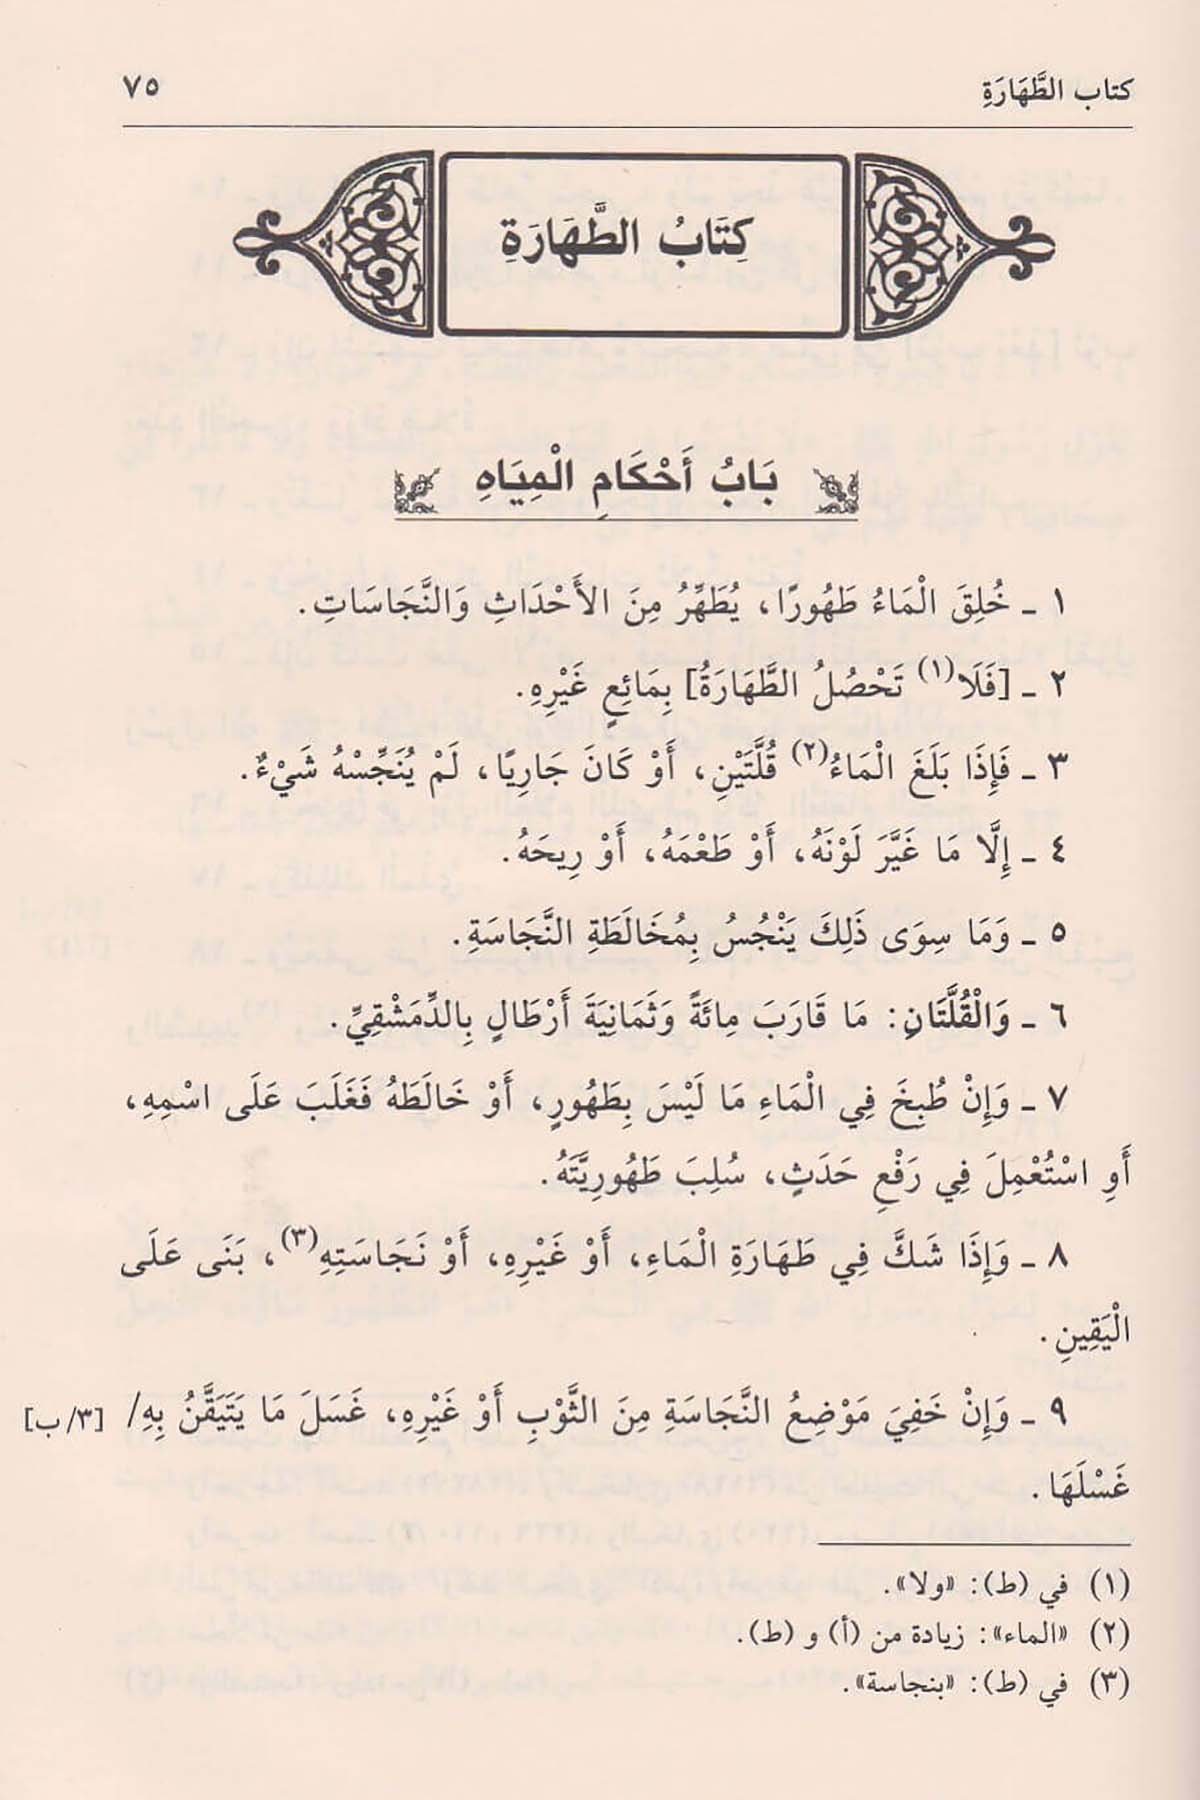 كتاب الطَّهَارَةِ ٧٥
كِتَابُ الطَّهَارَةِ
بَابُ أَحْكَامِ الْمِيَاهِ
١ ـ خُلِقَ الْمَاءُ طَهُورًا، يُطَهِّرُ مِنَ الأَحْدَاثِ وَالنَّجَاسَاتِ.
٢ ـ [فَلَا(١) تَحْصُلُ الطَّهَارَةُ] بِمَائِعٍ غَيْرِهِ.
٣ ـ فَإِذَا بَلَغَ الْمَاءُ(٢) قُلَّتَيْنِ، أَوْ كَانَ جَارِيًا، لَمْ يُنَجِّسْهُ شَيْءٌ.
٤ ـ إِلَّا مَا غَيَّرَ لَوْنَهُ، أَوْ طَعْمَهُ، أَوْ رِيحَهُ.
٥ ـ وَمَا سِوَى ذَلِكَ يَنْجُسُ بِمُخَالَطَةِ النَّجَاسَةِ.
٦ ـ وَالْقُلَّتَانِ: مَا قَارَبَ مِائَةً وَثَمَانِيَةَ أَرْطَالٍ بِالدِّمَشْقِيِّ.
٧ ـ وَإِنْ طُبِخَ فِي الْمَاءِ مَا لَيْسَ بِطَهُورٍ، أَوْ خَالَطَهُ فَغَلَبَ عَلَى اسْمِهِ،
أَوِ اسْتُعْمِلَ فِي رَفْعِ حَدَثٍ، سُلِبَ طَهُورِيَّتَهُ.
٨ ـ وَإِذَا شَكَّ فِي طَهَارَةِ الْمَاءِ، أَوْ غَيْرِهِ، أَوْ نَجَاسَتِهِ(٣)، بَنَى عَلَى
الْيَقِينِ.
٩ ـ وَإِنْ خَفِيَ مَوْضِعُ النَّجَاسَةِ مِنَ الثَّوْبِ أَوْ غَيْرِهِ، غَسَلَ مَا يَتَيَقَّنُ بِهِ/ [٣/ب]
غَسْلَهَا.
(١) في (ط): «ولا».
(٢) «الماء»: زيادة من (أ) و (ط).
(٣) في (ط): «بنجاسة».